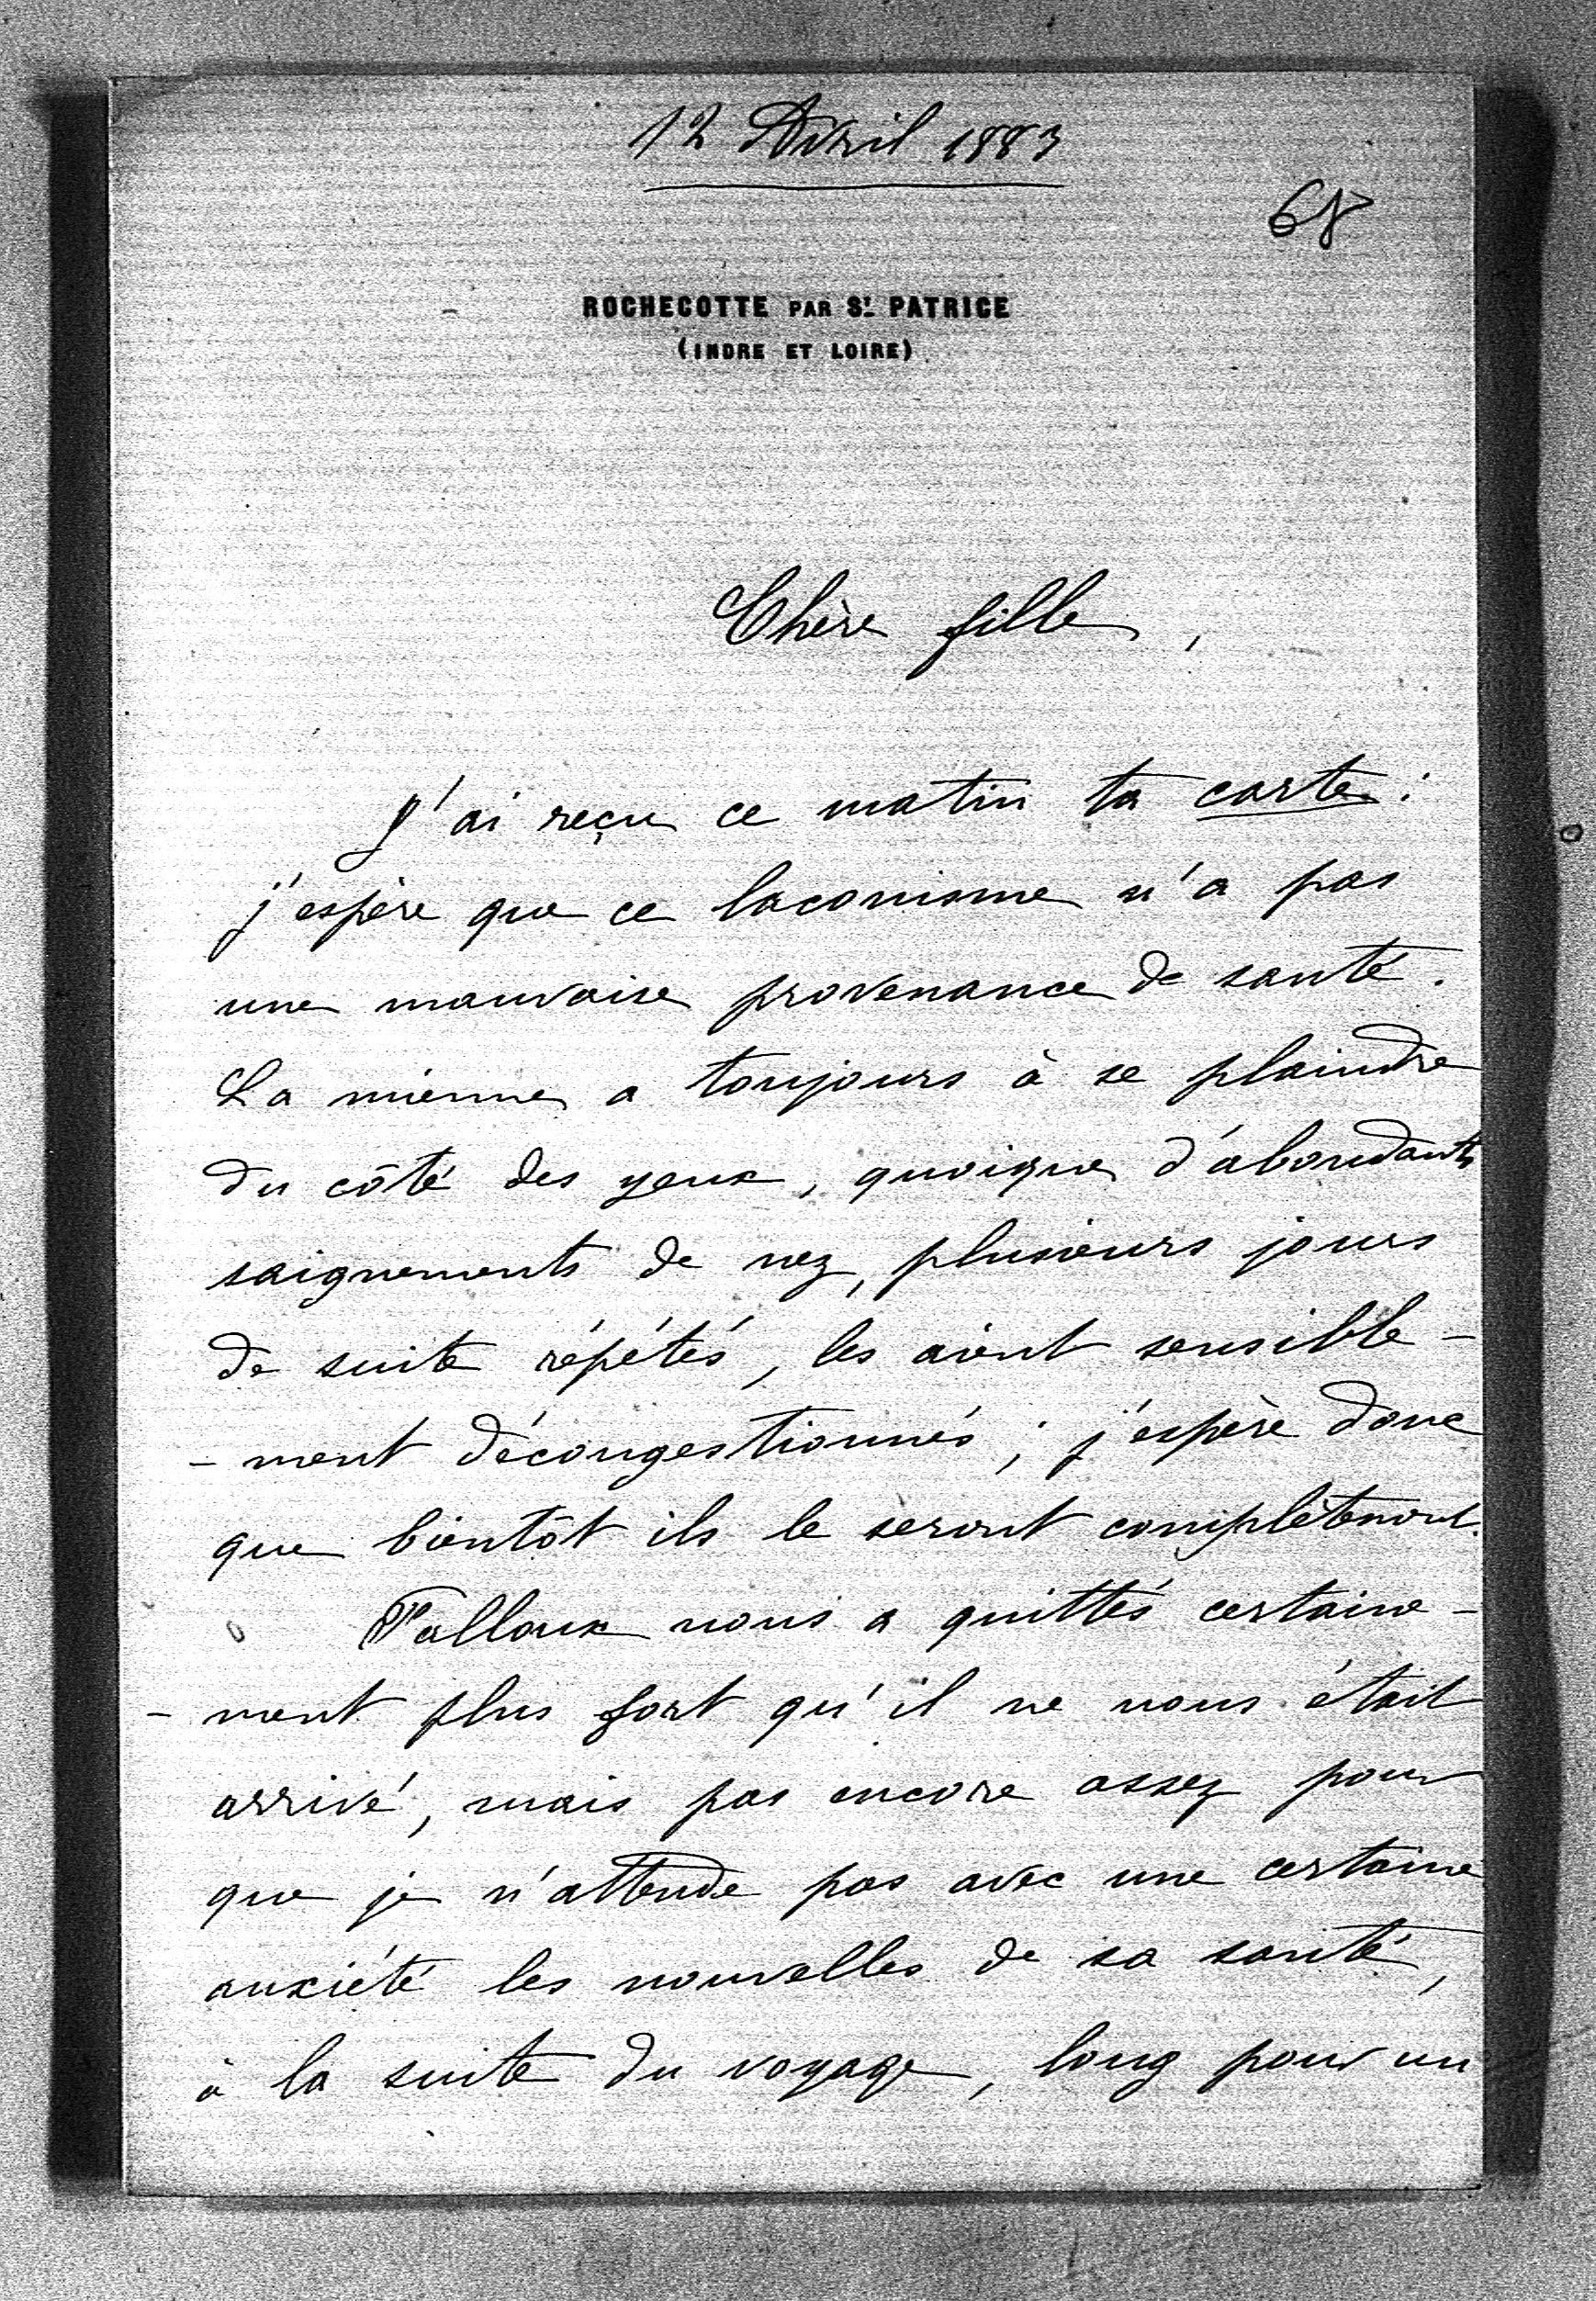 12 Avril 1883
68
ROCHECOTTE PAR ST. PATRICE
(INDRE ET LOIRE)
Chère fille,
J'ai reçu ce matin ta carte :
j'espère que ce laconisme n'a pas
une mauvaise provenance de santé.
La mienne a toujours à se plaindre
du côté des yeux, quoique d'abondants
saignements de nez, plusieurs jours
de suite répétés, les aient sensible-
-ment décongestionnés ; j'espère donc
que bientôt ils le seront complètement.
Falloux nous a quittés certaine-
-ment plus fort qu'il ne nous était
arrivé, mais pas encore assez pour
que je n'attende pas avec une certaine
anxiété les nouvelles de sa santé,
à la suite du voyage, long pour un